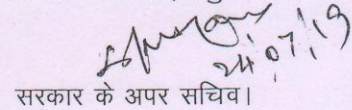 24/07/19
सरकार के अपर सचिव।